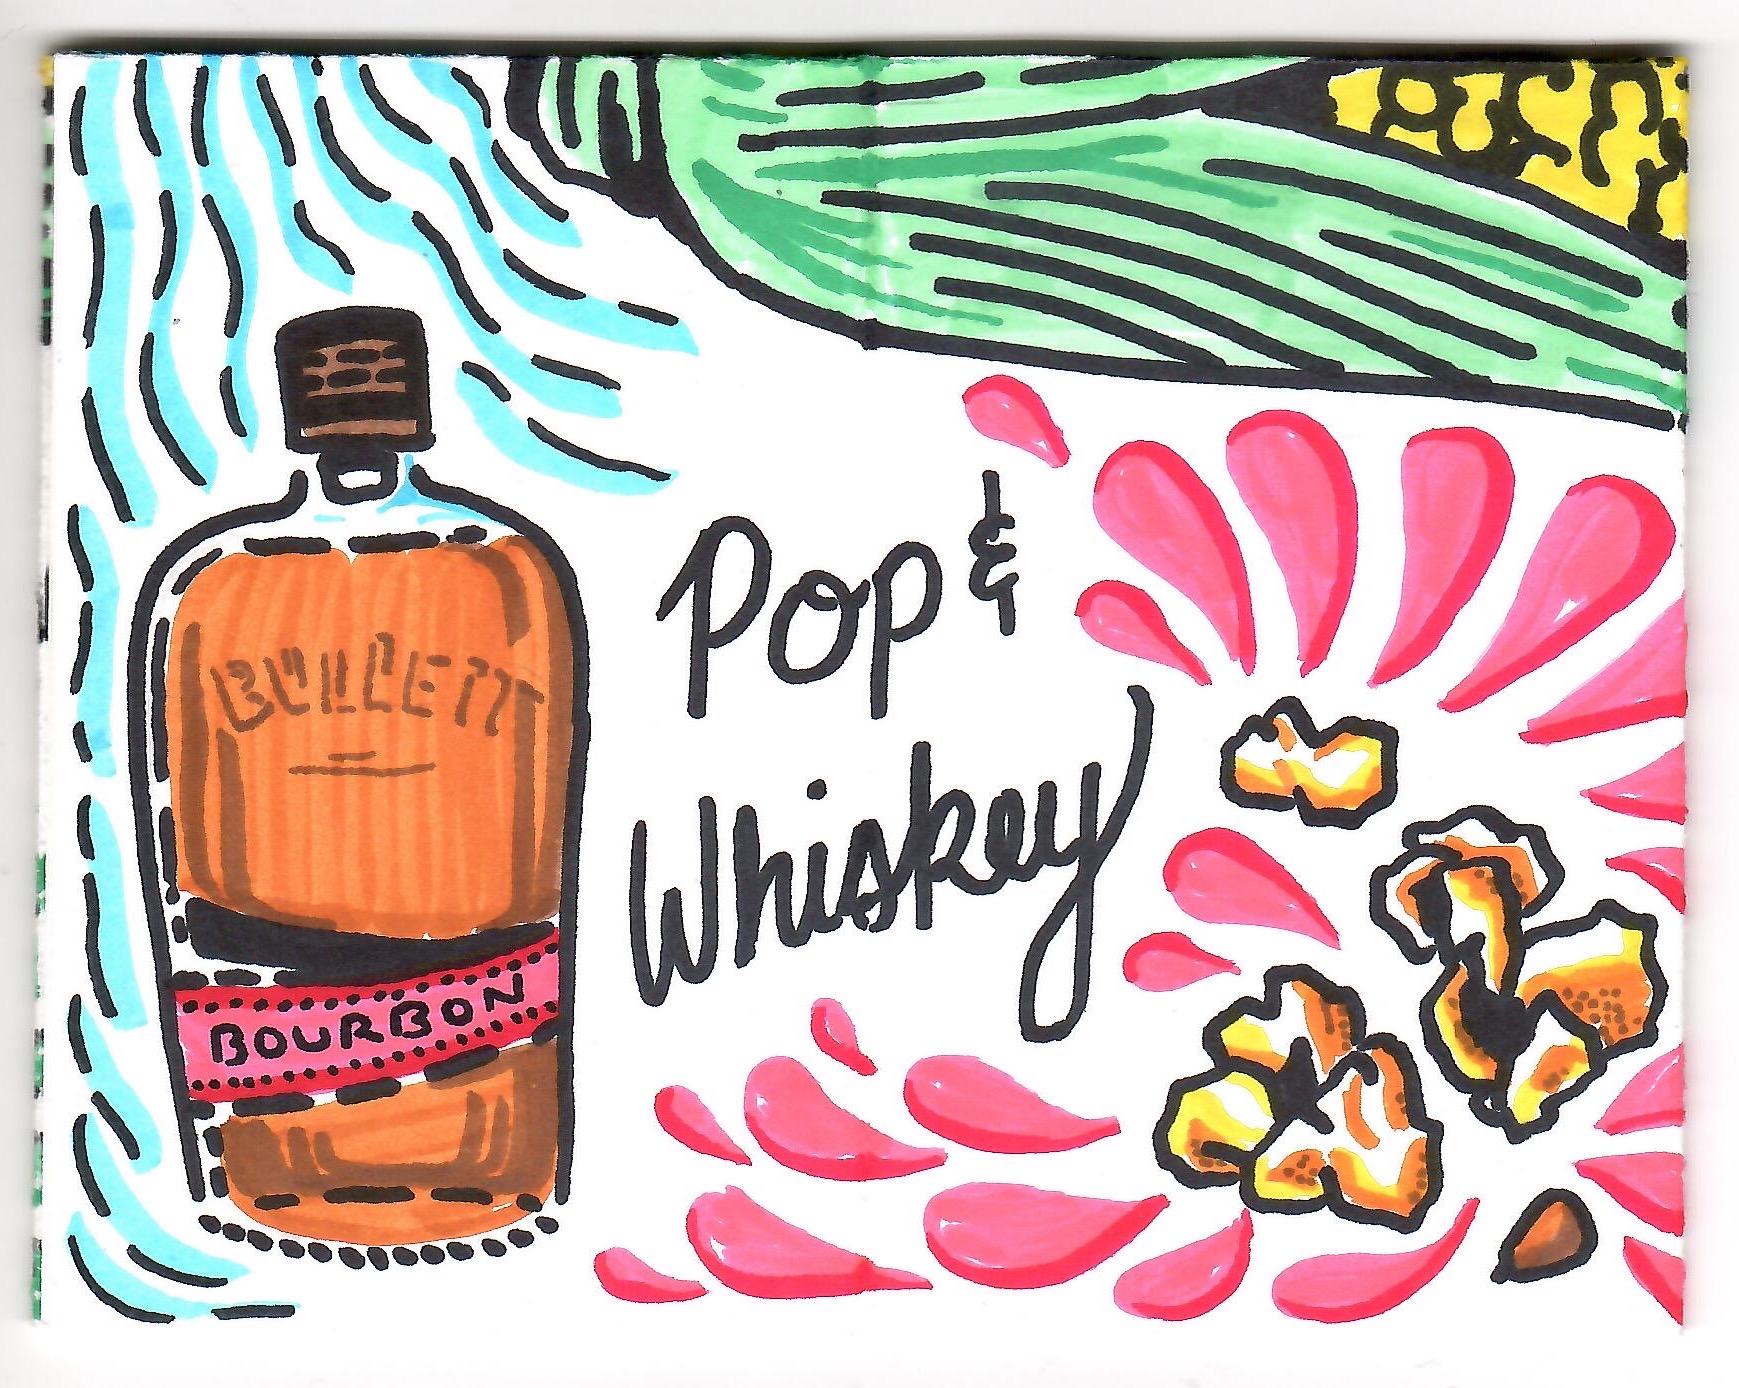 BULLEIT
BOURBON
Pop &
Whiskey